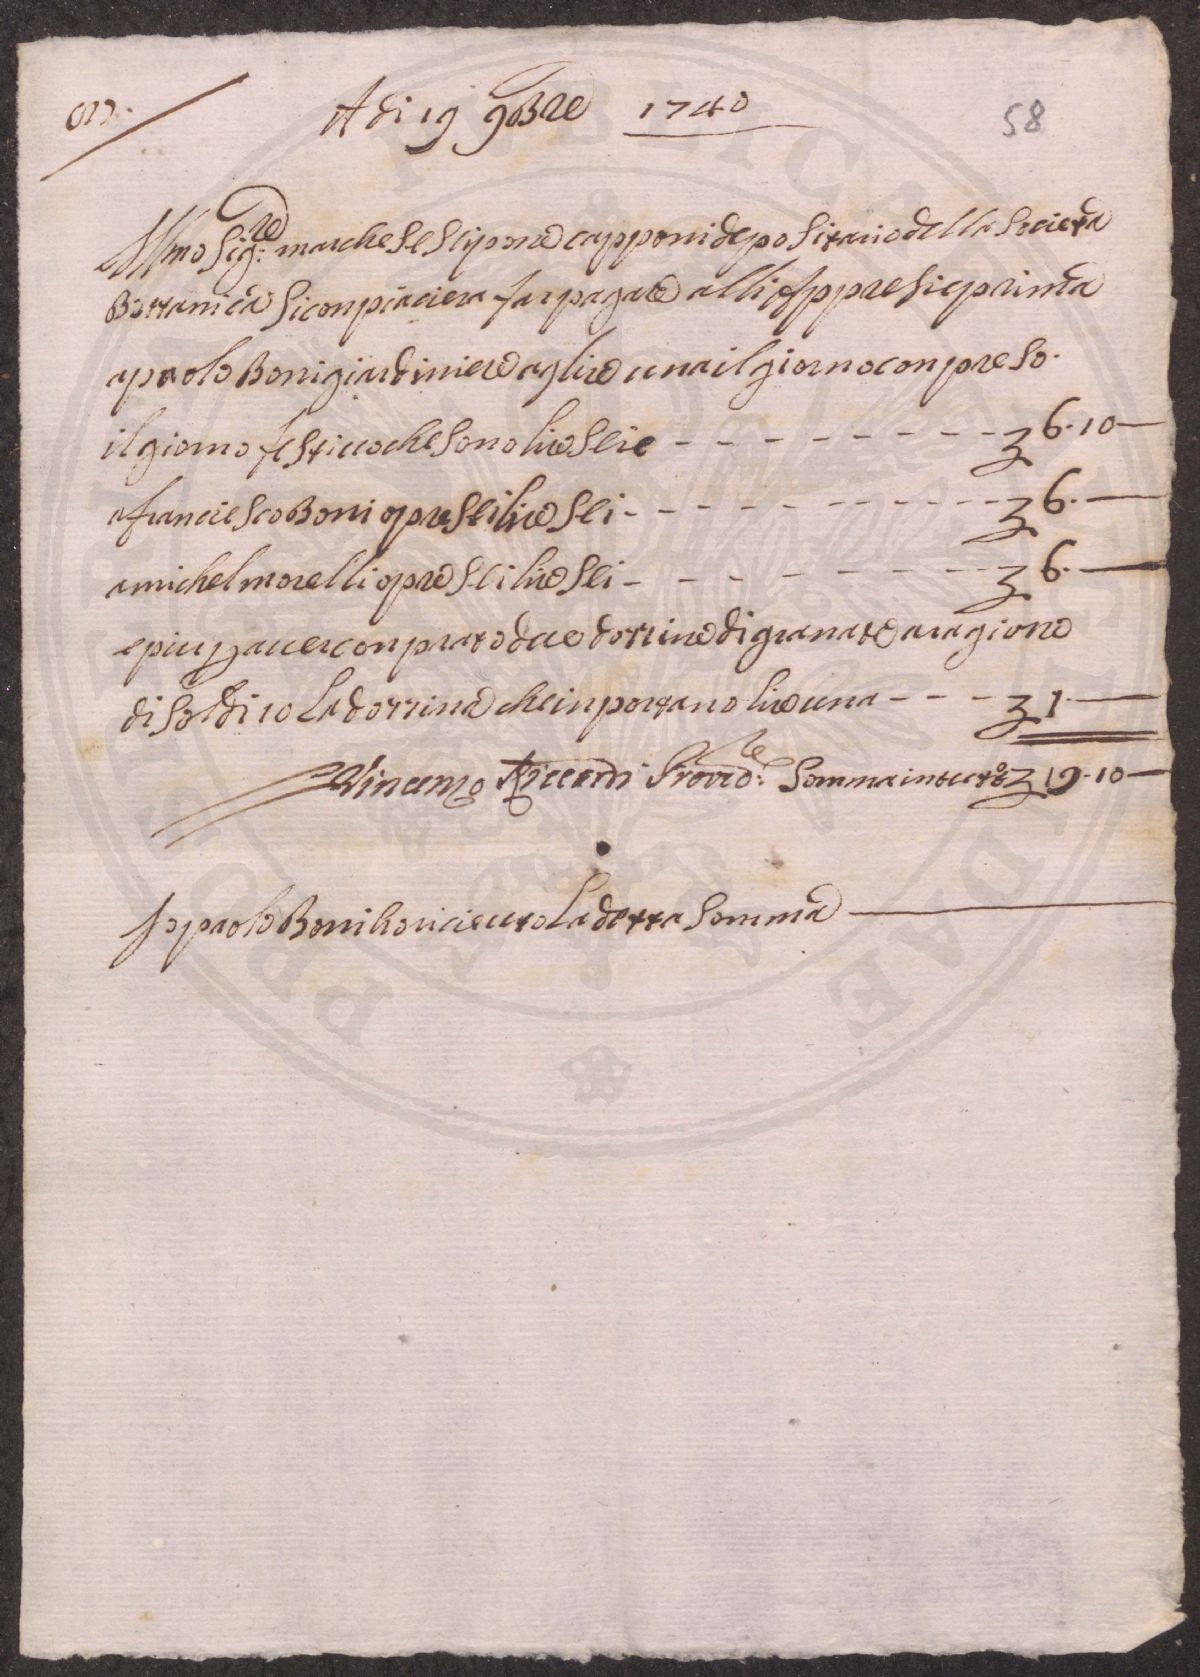 A di 19 9Bre 1740
58
Illmo Sigre: marchese Scipone capponi depositario della Societa
Bottanica Si conpiaciera far pagare alli Appresi e prima
a paolo Boni giardiniere a glire una il giorno conpreso
il giorno festiuo che sono lire Seie - - - - - - - - 6.10
a franciesco Boni opre Sei lire Sei - - - - - - - - 6.
a michel morelli opre Sei lire Sei - - - - - - - - 6.
e piu p auer conprato due dozzine di granate a ragione
di Soldi 10 La dozzina che inportano lire una - - - - 1.
Vincenzo Riccardi Provre: Somma in tutto 19.10
Jo paolo Boni ho riceuuto La detta Somma